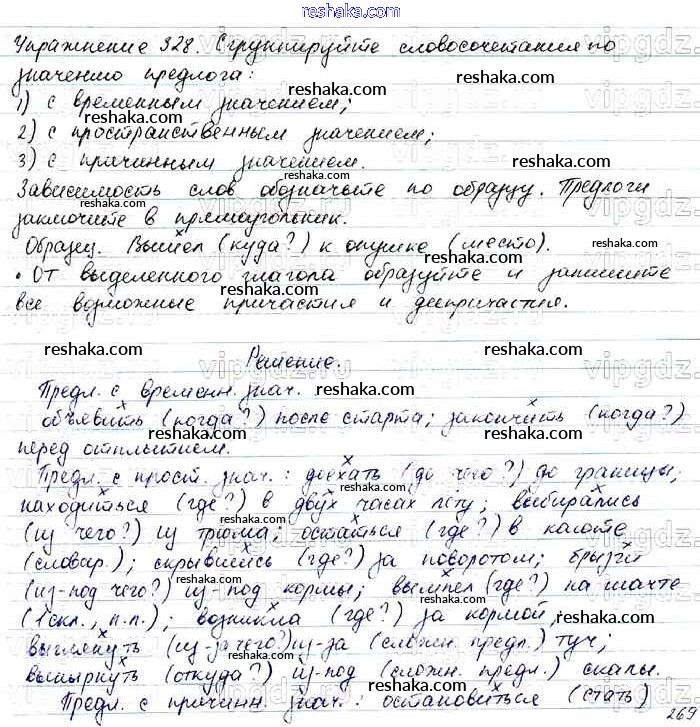 reshaka.com
Упражнение 328. Сгруппируйте словосочетания по
значению предлога:
1) с временным значением;
2) с пространственным значением;
3) с причинным значением.
Зависимость слов обозначьте по образцу. Предлоги
заключите в прямоугольник.
Образец. Вышел (куда?) к опушке (место).
• От выделенного глагола образуйте и запишите
все возможные причастия и деепричастия.
Решение.
Предл. с временн. знач.
объявить (когда?) после старта; закончить (когда?)
перед отплытием.
Предл. с прост. знач.: доехать (до чего?) до границы;
находиться (где?) в двух часах лёту; выбирались
(из чего?) из трюма; остаться (где?) в каюте
(словар.); скрывшись (где?) за поворотом; брызги
(из-под чего?) из-под кормы; вымпел (где?) на мачте
(1 скл., п.п.); возникла (где?) за кормой;
выглянуть (из-за чего?) из-за (сложн. предл.) туч;
вынырнуть (откуда?) из-под (сложн. предл.) скалы.
Предл. с причинн. знач.: остановиться (стать)
269